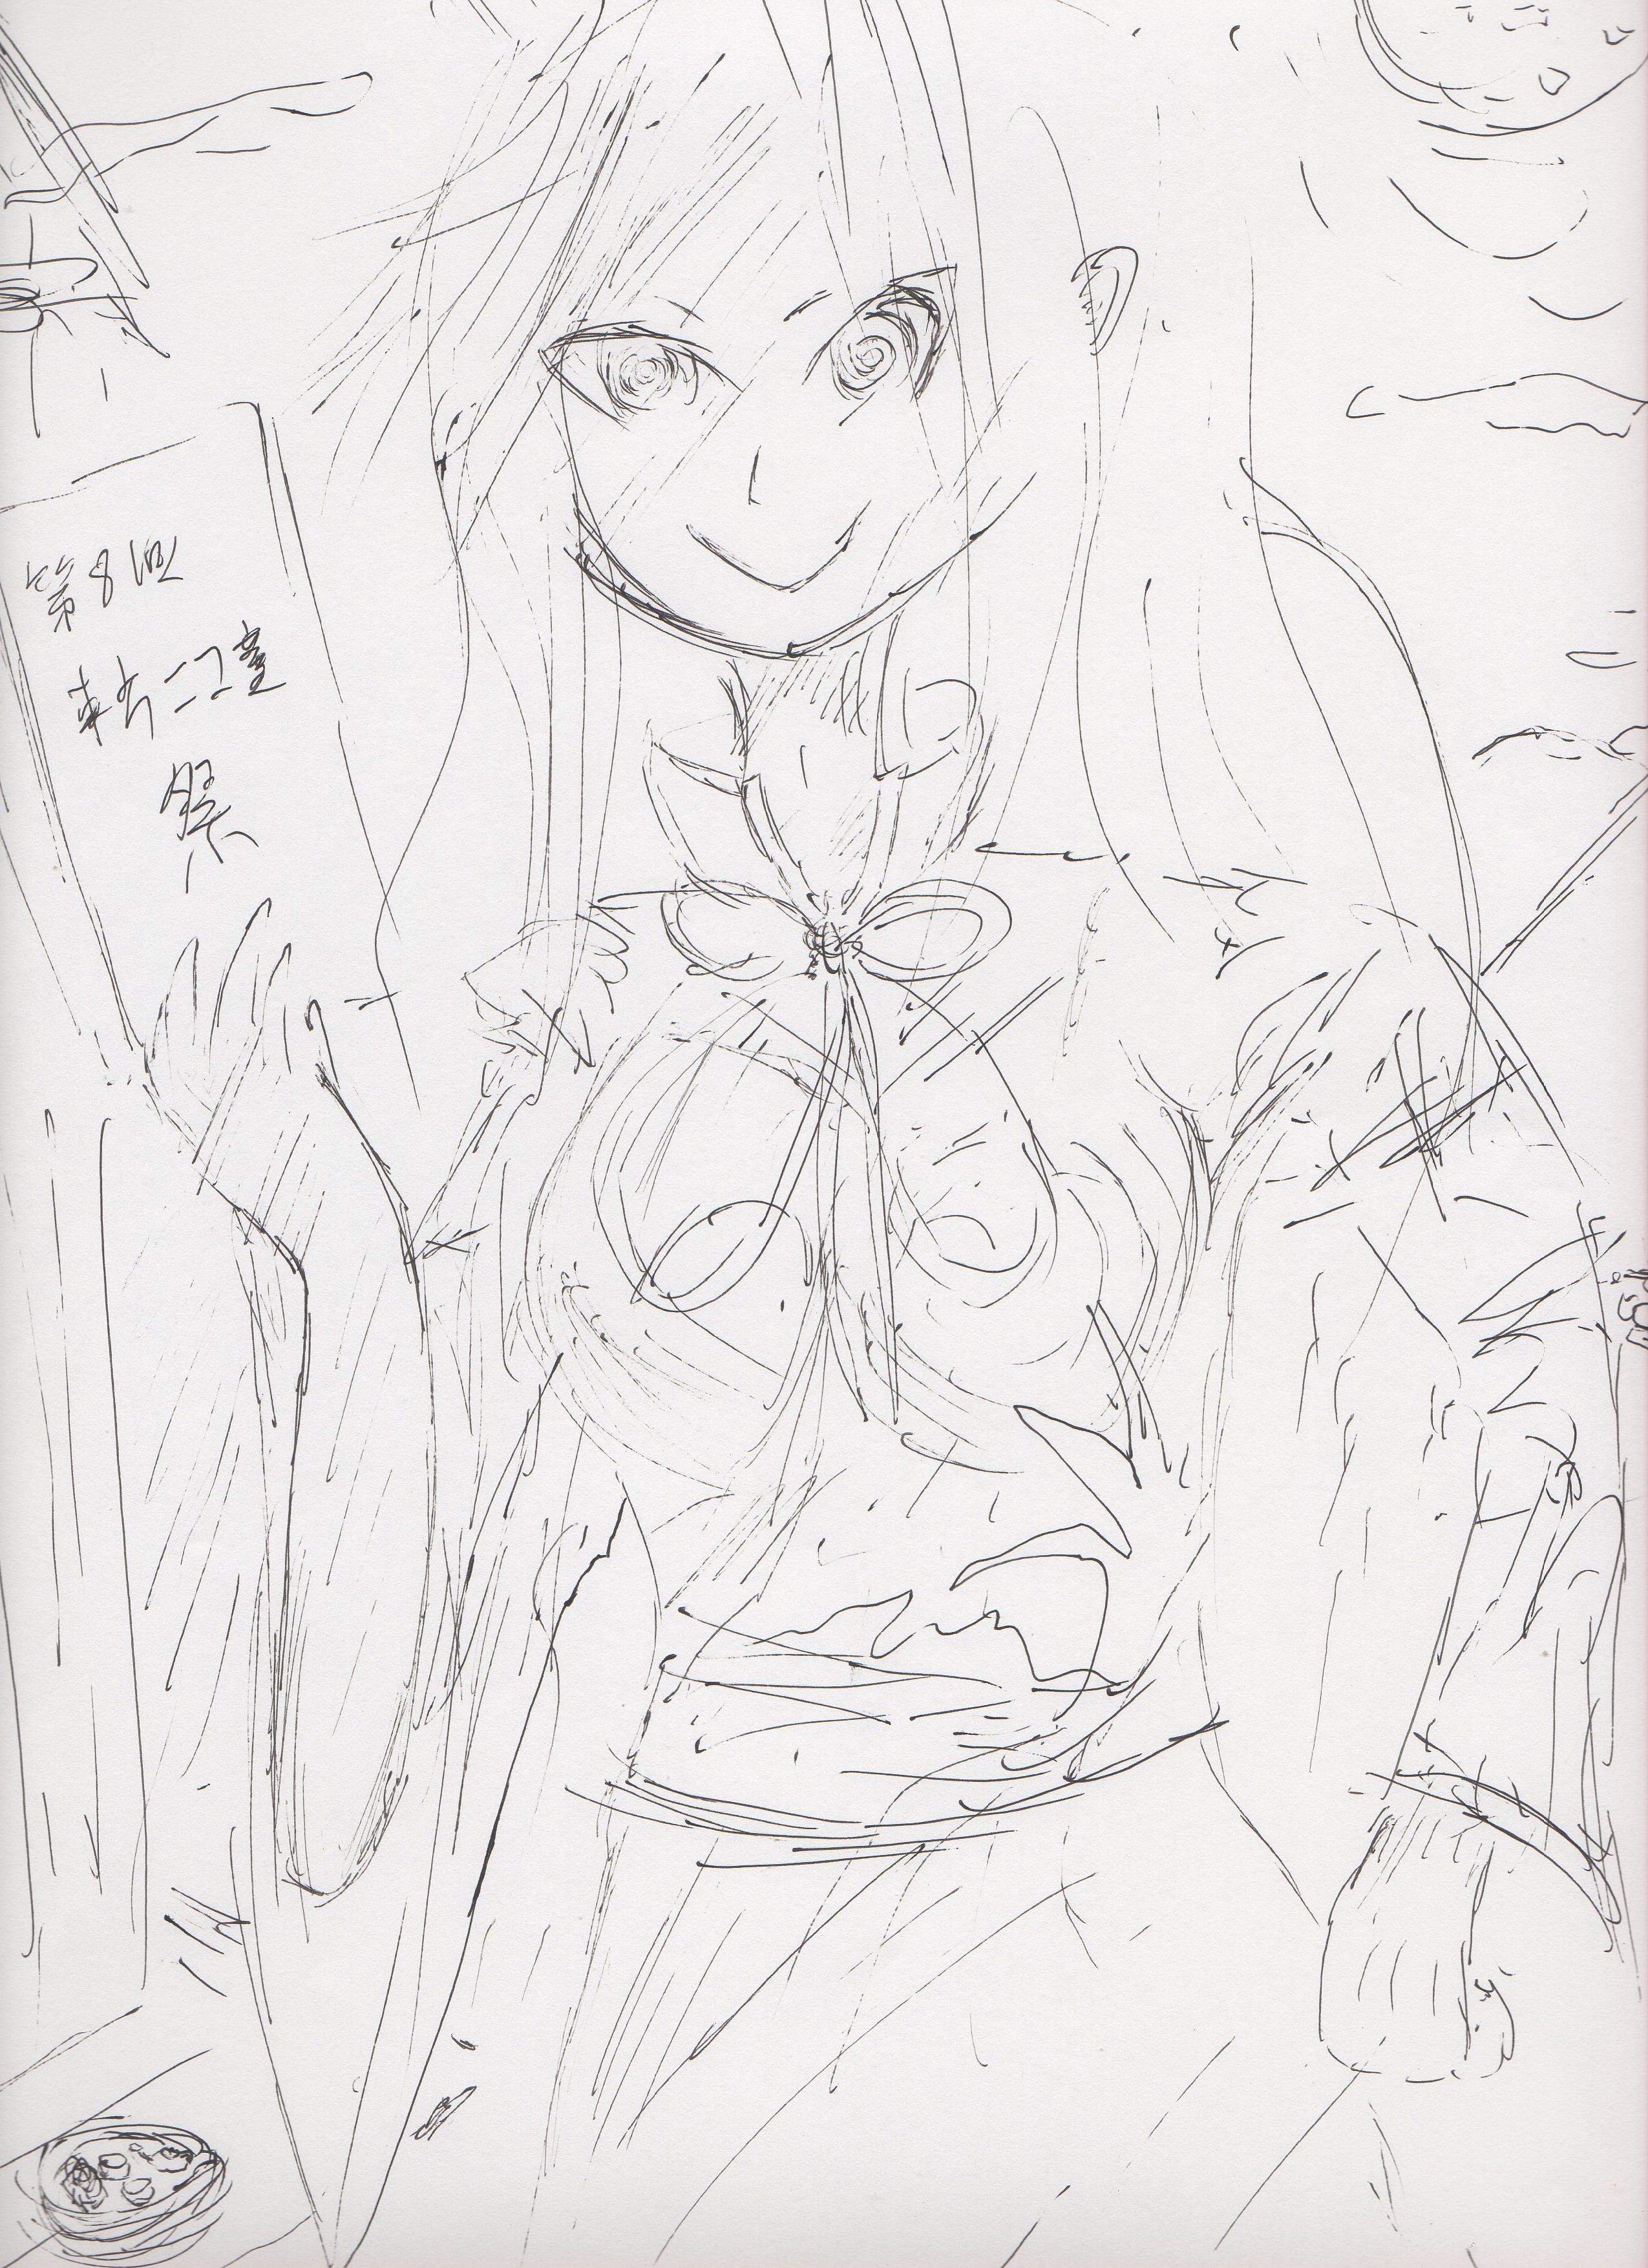 第8回
東方ニコ童
祭